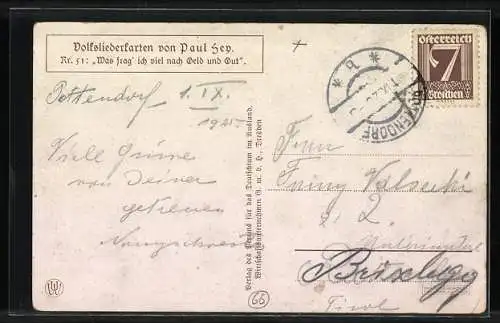 Volksliederkarten von Paul Hey.
Nr. 51: „Was frag' ich viel nach Geld und Gut".
Pottendorf 1. IX.
1925
Viele Grüsse
von Deiner
getreuen
Verlag des Vereins für das Deutschtum im Ausland,
Wirtschaftsunternehmen G. m. b. H., Dresden
Österreich
7
Groschen
POTTENDORF
Frau
Fanny
Brixlegg
Tirol
66